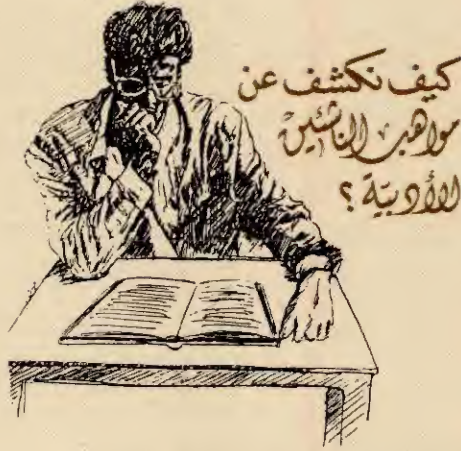 كيف نكشف عن
مواهب الناشئين
الأدبية ؟